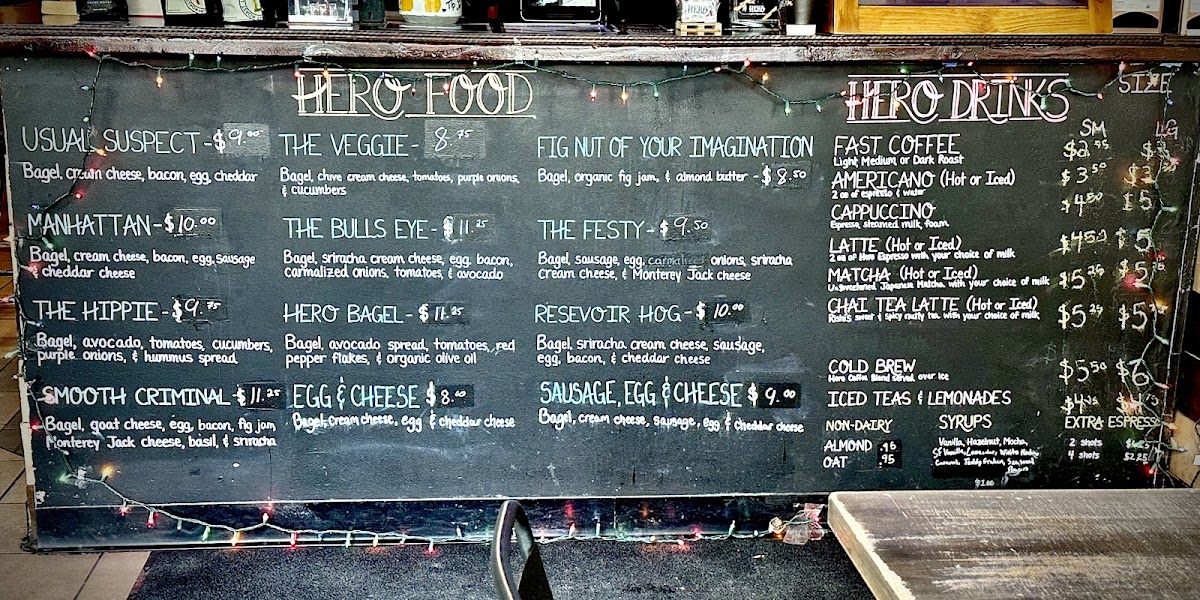 HERO FOOD
USUAL SUSPECT - $9.00
Bagel, cream cheese, bacon, egg, cheddar
MANHATTAN - $10.00
Bagel, cream cheese, bacon, egg, sausage
& cheddar cheese
THE HIPPIE - $9.75
Bagel, avocado, tomatoes, cucumbers,
purple onions, & hummus spread
SMOOTH CRIMINAL - $11.25
Bagel, goat cheese, egg, bacon, fig jam,
Monterey Jack cheese, basil, & sriracha
THE VEGGIE - 8.75
Bagel, chive cream cheese, tomatoes, purple onions,
& cucumbers
THE BULLS EYE - $11.25
Bagel, sriracha cream cheese, egg, bacon,
carmalized onions, tomatoes, & avocado
HERO BAGEL - $11.25
Bagel, avocado spread, tomatoes, red
pepper flakes, & organic olive oil
EGG & CHEESE $8.00
Bagel, cream cheese, egg & cheddar cheese
FIG NUT OF YOUR IMAGINATION
Bagel, organic fig jam, & almond butter - $8.50
THE FESTY - $9.50
Bagel, sausage, egg, carmalized onions, sriracha
cream cheese, & Monterey Jack cheese
RESEVOIR HOG - $10.00
Bagel, sriracha cream cheese, sausage,
egg, bacon, & cheddar cheese
SAUSAGE, EGG & CHEESE $9.00
Bagel, cream cheese, sausage, egg & cheddar cheese
HERO DRINKS
SIZE
SM LG
FAST COFFEE
Light Medium or Dark Roast
AMERICANO (Hot or Iced) $3.50
2 oz of espresso & water
CAPPUCCINO $4.50 $5
Espresso, steamed milk, foam
LATTE (Hot or Iced) $4.50 $5
2 oz of Hero Espresso with your choice of milk
MATCHA (Hot or Iced) $5.25 $5
Unsweetened Japanese Matcha, with your choice of milk
CHAI TEA LATTE (Hot or Iced) $5.25 $5
Rishi's sweet & spicy nutty tea with your choice of milk
COLD BREW $5.50 $6
Hero Coffee Blend served over ice
ICED TEAS & LEMONADES
NON-DAIRY
ALMOND .95
OAT .95
SYRUPS
Vanilla, Hazelnut, Mocha,
SF Vanilla, Lavender, White Mocha
Caramel, Teddy Graham, Seasonal
Flavors
$1.00
EXTRA ESPRESSO
2 shots
4 shots $2.25